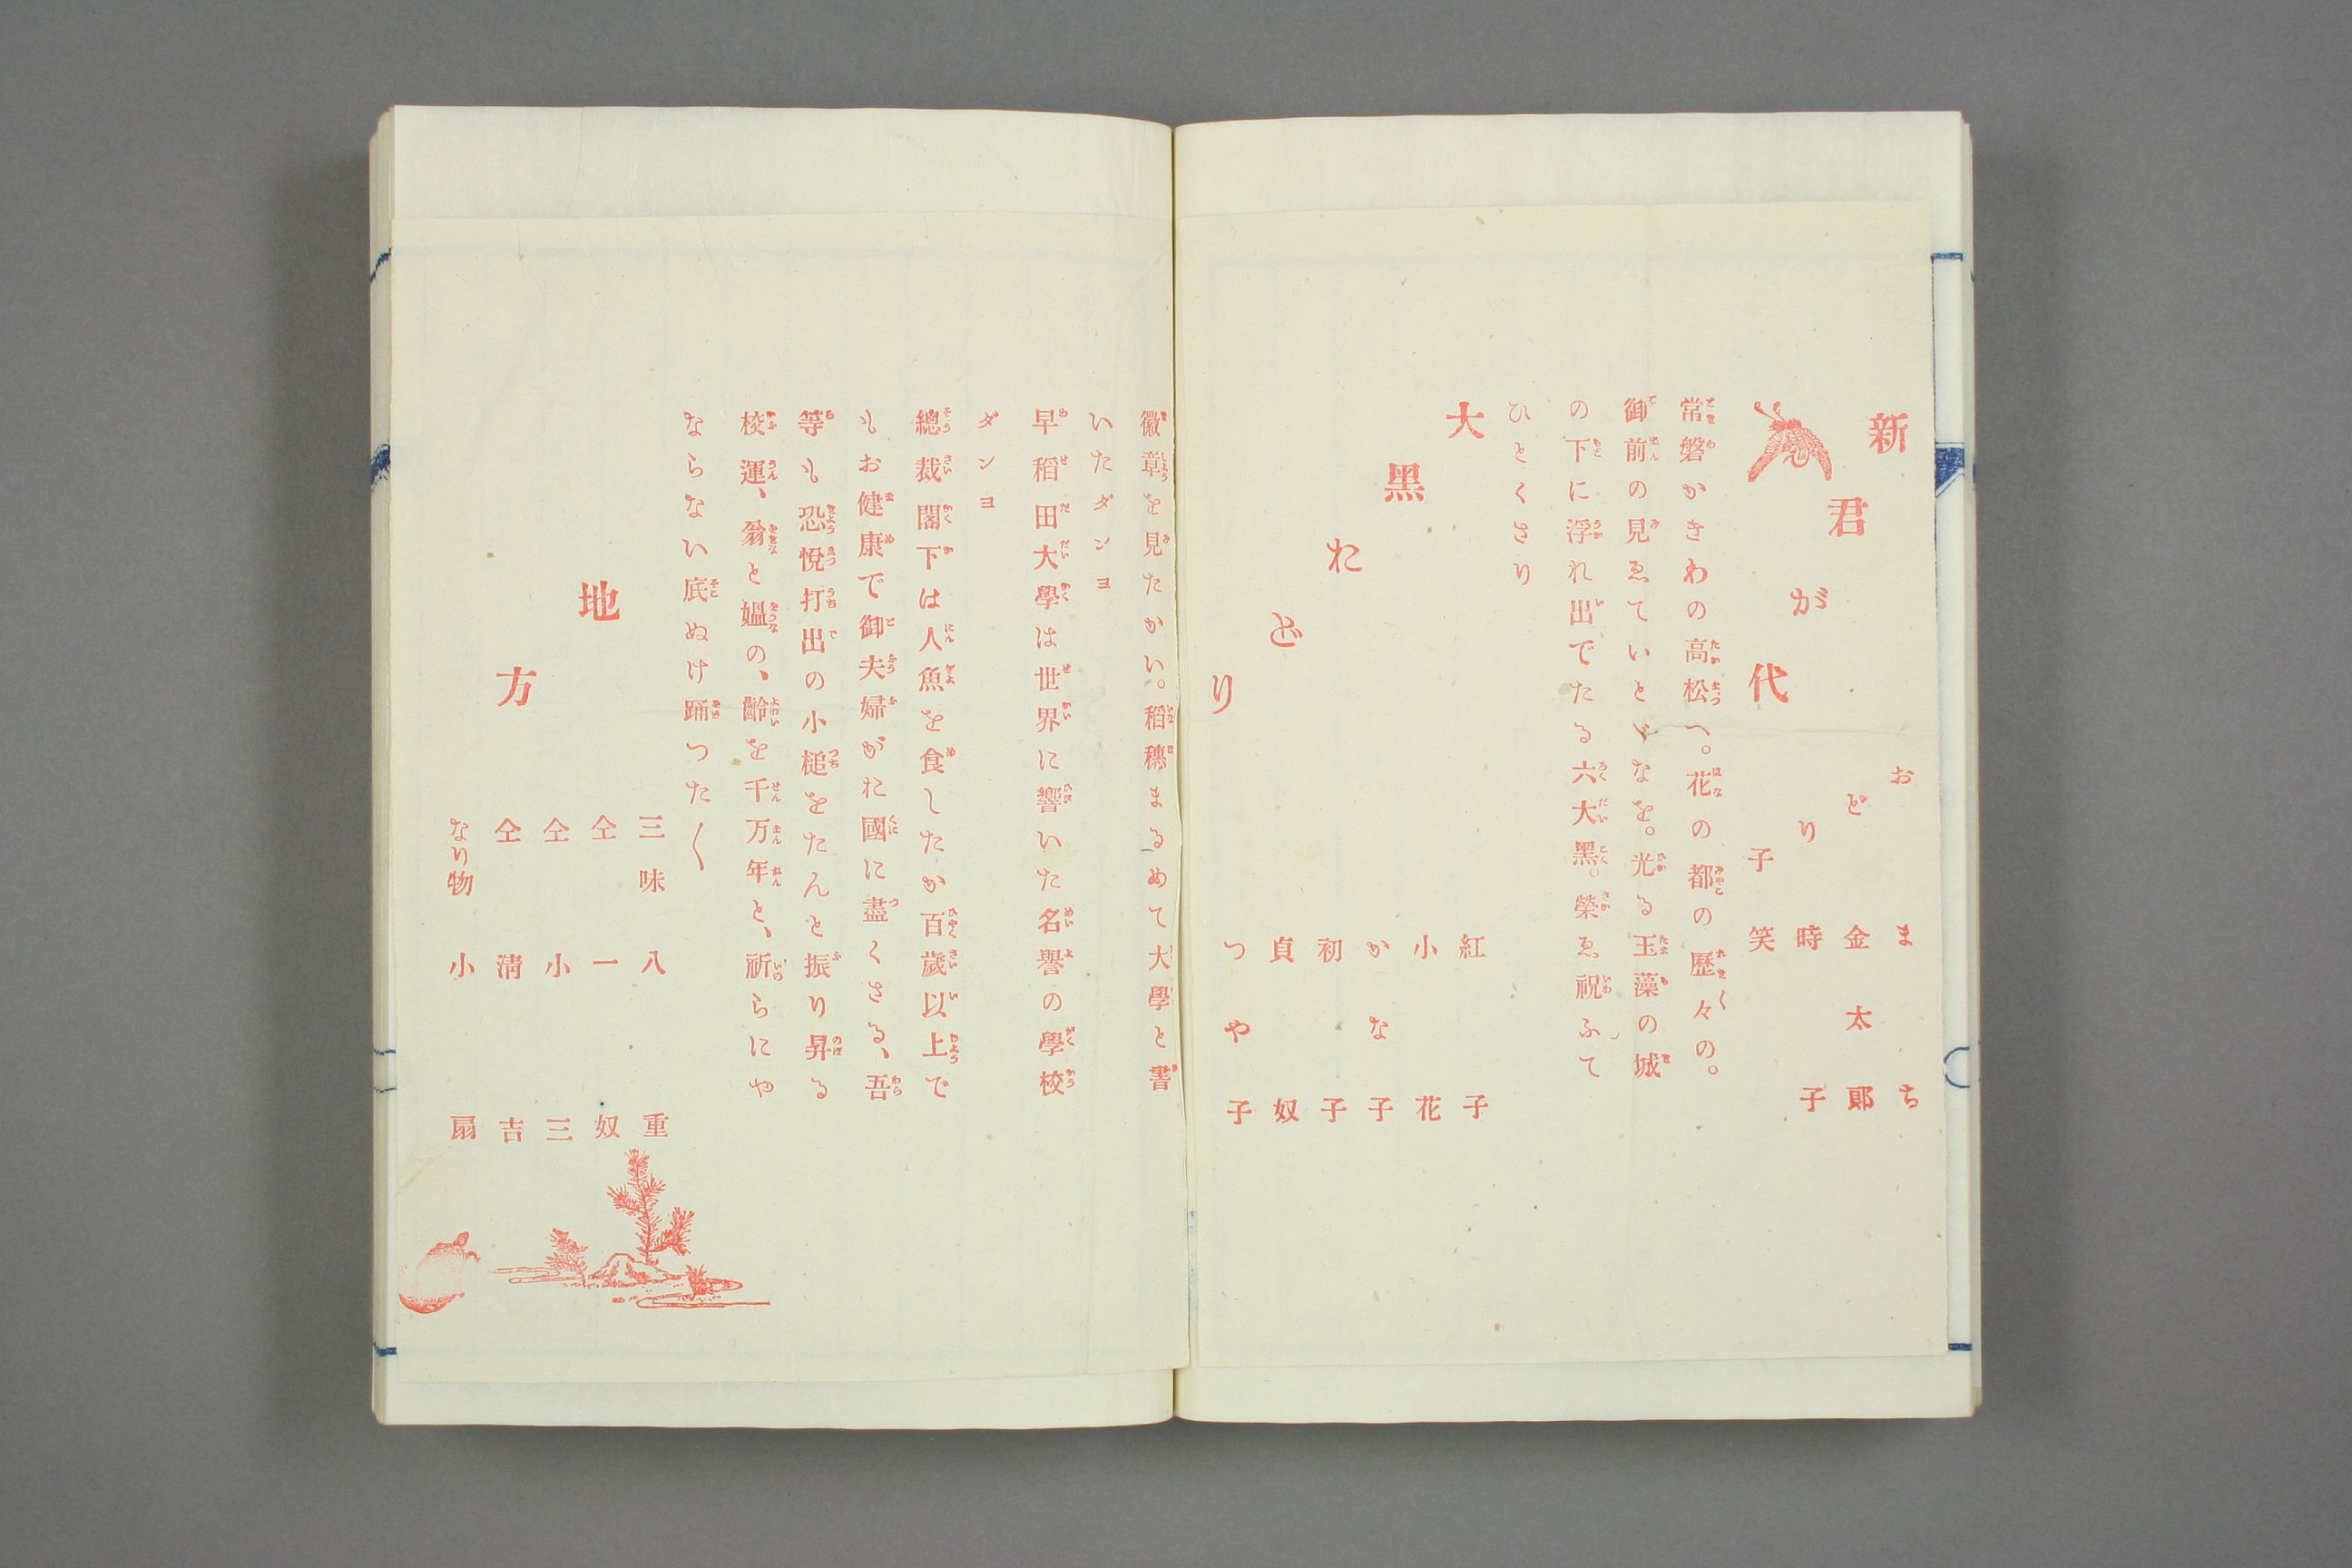 新君が代
おどり子
まち
金太郎
時子
笑
常磐かきわの高松へ。花の都の歴々の。
御前の見ゑていとゞなを。光る玉藻の城
の下に浮れ出でたる六大黑。榮ゑ祝ふて
ひとくさり
大黒おどり
紅子
小花
かな子
初子
貞奴
つや子
徽章を見たかい。稻穗まるめて大學と書
いたダンヨ
早稻田大學は世界に響いた名譽の學校
ダンヨ
總裁閣下は人魚を食したか百歲以上で
もお健康で御夫婦がた國に盡くさる、吾
等も恐悅打出の小槌をたんと振り昇る
校運、翁と媼の、齡を千万年と、祈らにや
ならない底ぬけ踊つた〱
地方
三味 八重
仝 一奴
仝 小三
仝 清吉
なり物 小扇